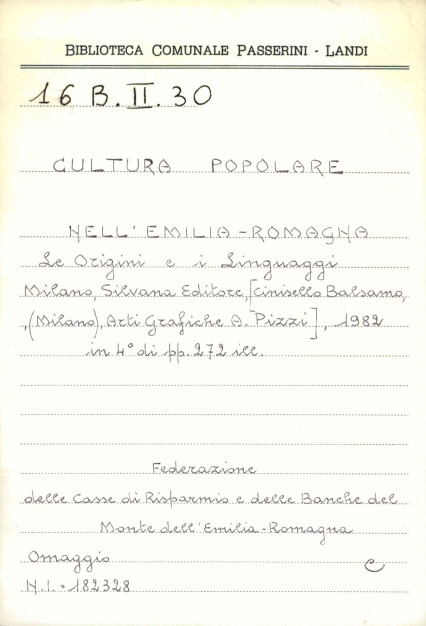 BIBLIOTECA COMUNALE PASSERINI - LANDI
16 B. II. 30
CULTURA POPOLARE
NELL'EMILIA-ROMAGNA
Le Origini e i Linguaggi
Milano, Silvana Editore, [Cinisello Balsamo,
,(Milano), Arti Grafiche A. Pizzi], 1982
in 4° di pp. 272 ill.
Federazione
delle Casse di Risparmio e delle Banche del
Monte dell'Emilia-Romagna
Omaggio C
N.I. = 182328